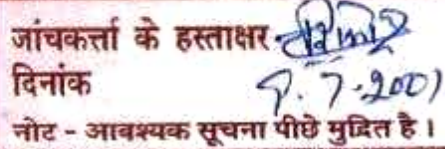 जांचकर्त्ता के हस्ताक्षर
दिनांक 9.7.2001
नोट - आवश्यक सूचना पीछे मुद्रित है ।